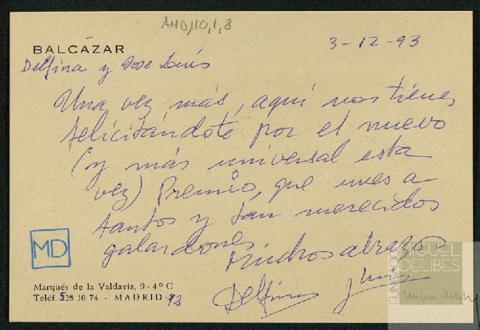 AMD,110,1,8
BALCÁZAR
3-12-93
Delfina y Jose Luis
Una vez más, aquí nos tienes
felicitándote por el nuevo
(y más universal esta
vez) Premio, que unes a
tantos y tan merecidos
galardones
Muchos abrazos
Delfina y Luis
MD
Marqués de la Valdavia, 9 - 4º C
Teléf. 528 10 74 - MADRID-
FUNDACIÓN
MIGUEL
DELIBES